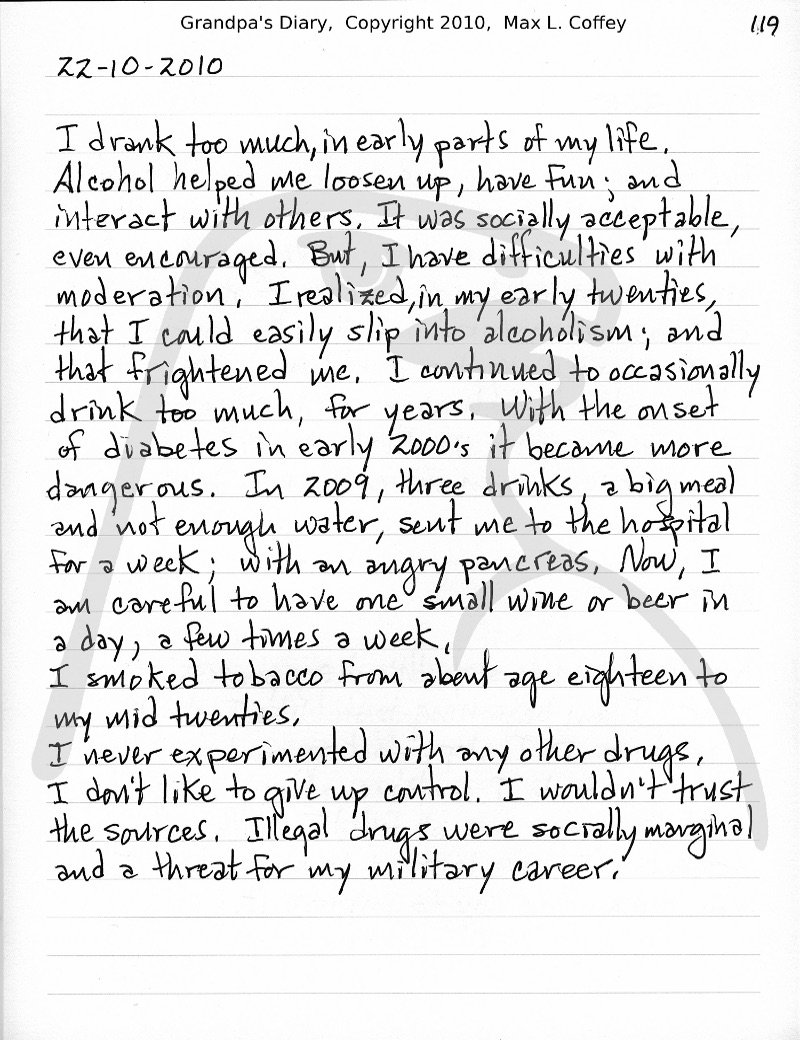 Grandpa's Diary, Copyright 2010, Max L. Coffey
119
22-10-2010
I drank too much, in early parts of my life.
Alcohol helped me loosen up, have fun; and
interact with others. It was socially acceptable,
even encouraged. But, I have difficulties with
moderation. I realized, in my early twenties,
that I could easily slip into alcoholism; and
that frightened me. I continued to occasionally
drink too much, for years. With the onset
of diabetes in early 2000's it became more
dangerous. In 2009, three drinks, a big meal
and not enough water, sent me to the hospital
for a week; with an angry pancreas. Now, I
am careful to have one small wine or beer in
a day, a few times a week.
I smoked tobacco from about age eighteen to
my mid twenties.
I never experimented with any other drugs.
I don't like to give up control. I wouldn't trust
the sources. Illegal drugs were socially marginal
and a threat for my military career.